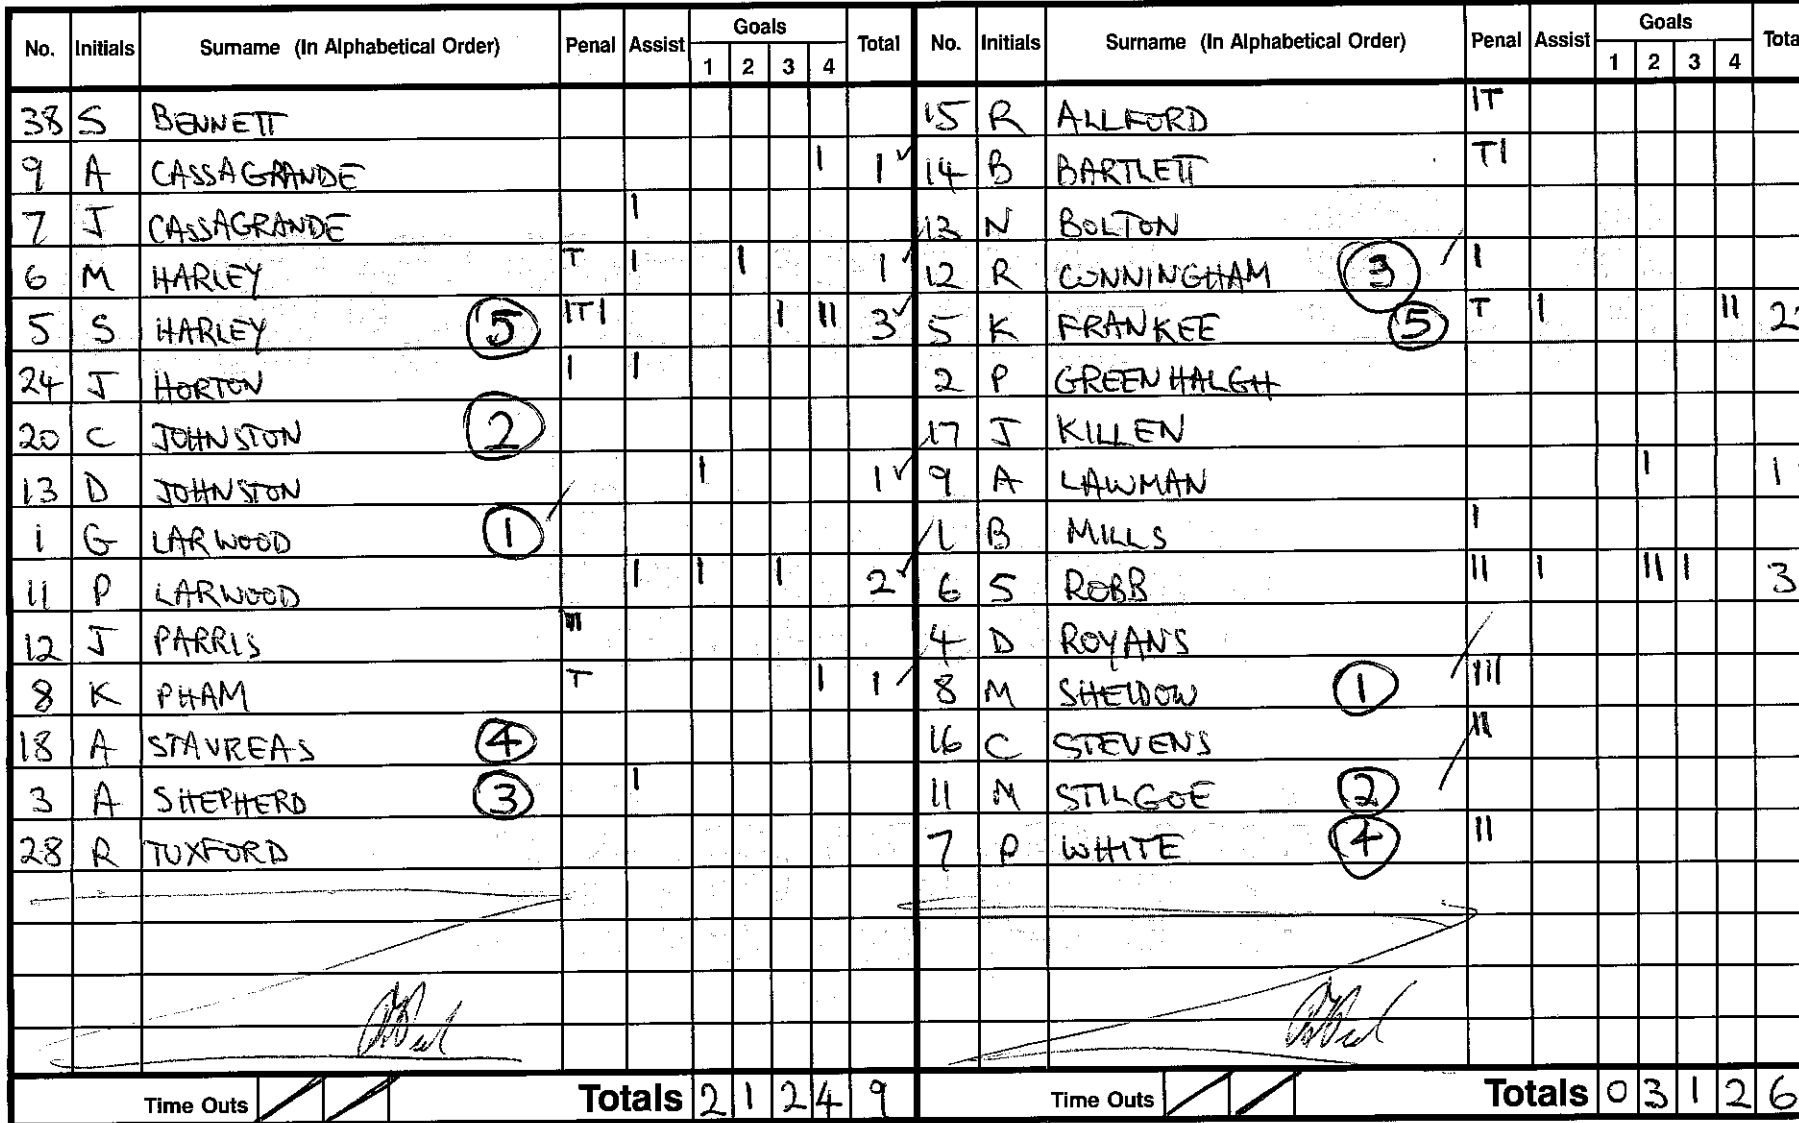 No. Initials Surname (In Alphabetical Order) Penal Assist Goals 1 2 3 4 Total
38 S BENNETT
9 A CASSAGRANDE I 1
7 J CASSAGRANDE I
6 M HARLEY T I I 1
5 S HARLEY 5 ITI I II 3
24 J HORTON I I
20 C JOHNSTON 2
13 D JOHNSTON I 1
1 G LARWOOD 1
11 P LARWOOD I I I 2
12 J PARRIS III
8 K PHAM T I 1
18 A STAVREAS 4
3 A SHEPHERD 3 I
28 R TUXFORD
Time Outs Totals 2 1 2 4 9
No. Initials Surname (In Alphabetical Order) Penal Assist Goals 1 2 3 4 Total
15 R ALLFORD IT
14 B BARTLETT TI
13 N BOLTON
12 R CONNINGHAM 3 I
5 K FRANKEE 5 T I II 2
2 P GREENHALGH
17 J KILLEN
9 A LAWMAN I 1
1 B MILLS I
6 S ROBB II I II I 3
4 D ROYANS
8 M SHELDOW 1 III
16 C STEVENS II
11 M STILGOE 2
7 P WHITE 4 II
Time Outs Totals 0 3 1 2 6